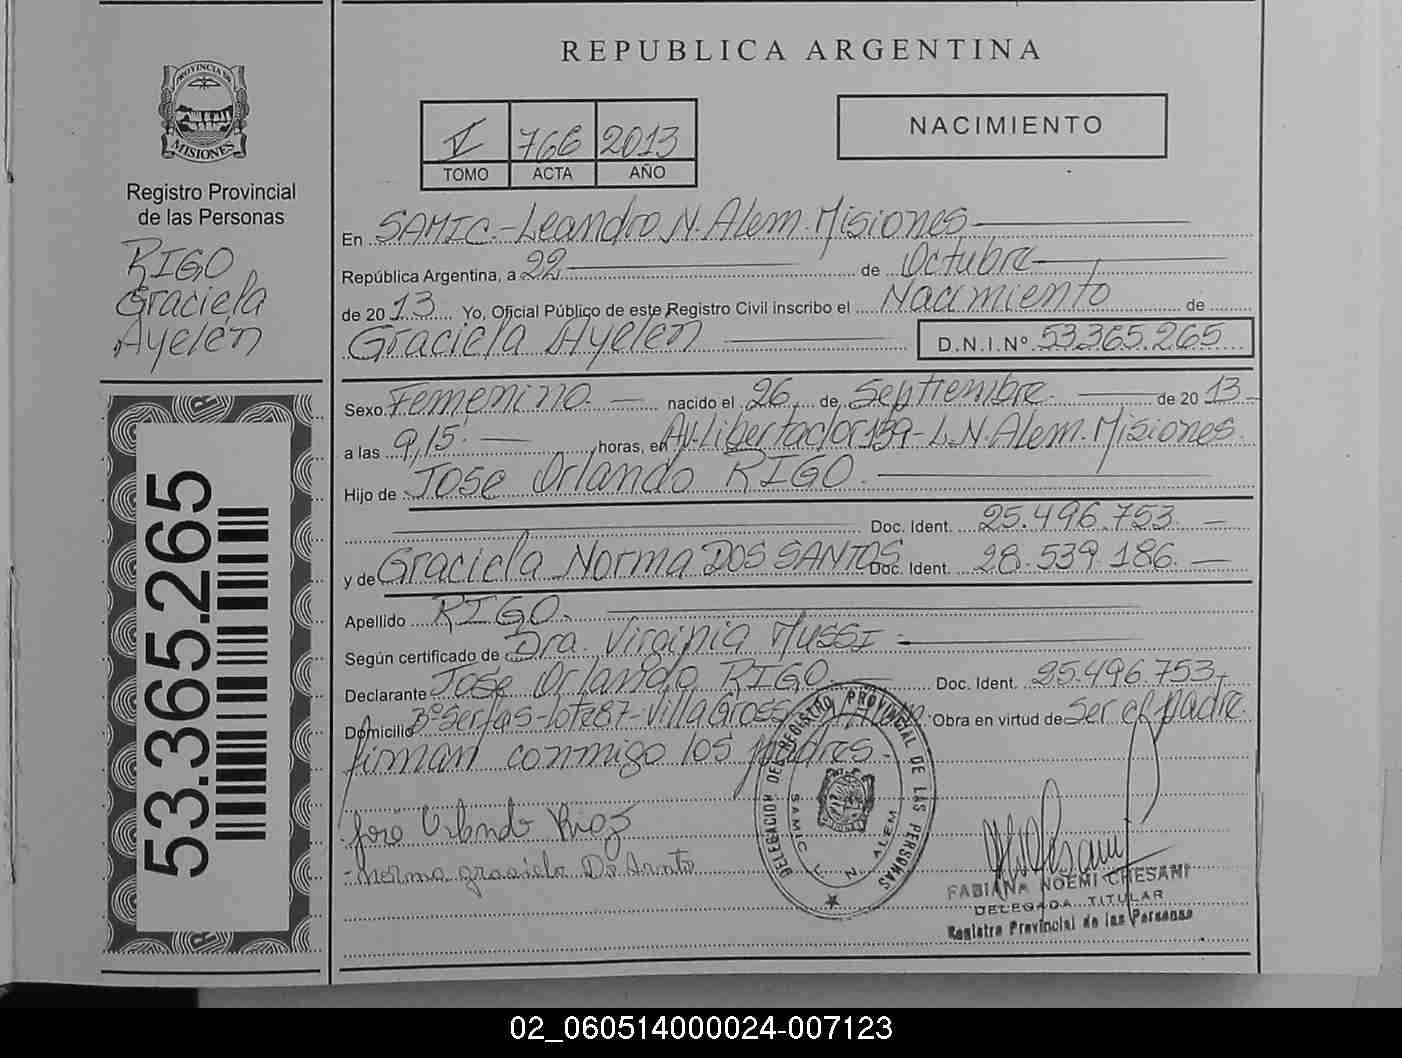 REPUBLICA ARGENTINA
PROVINCIA DE
MISIONES
Registro Provincial
de las Personas
RIGO
Graciela
Ayelén
53.365.265
V 766 2013
TOMO ACTA AÑO
NACIMIENTO
En SAMIC.-Leandro N. Alem. Misiones
República Argentina, a 22 de Octubre
de 2013 Yo, Oficial Público de este Registro Civil inscribo el Nacimiento de
Graciela Ayelén D.N.I.Nº 53.365.265
Sexo Femenino. nacido el 26 de Septiembre de 2013
a las 9,15 horas, en Av. Libertador 159-L.N.Alem.Misiones.
Hijo de José Orlando RIGO.
Doc. Ident. 25.496.753
y de Graciela Norma DOS SANTOS Doc. Ident. 28.539.186
Apellido RIGO.
Según certificado de Dra. Virginia Mussi
Declarante José Orlando RIGO Doc. Ident. 25.496.753
Domicilio Bº -Lote87-Villa Alem. Obra en virtud de Ser el padre
firman conmigo los padres.
José Orlando
Norma graciela
DELEGACION DEL REGISTRO PROVINCIAL DE LAS PERSONAS
SAMIC L. N. ALEM
FABIANA NOEMI CHESANI
DELEGADA TITULAR
Registro Provincial de las Personas
02_060514000024-007123